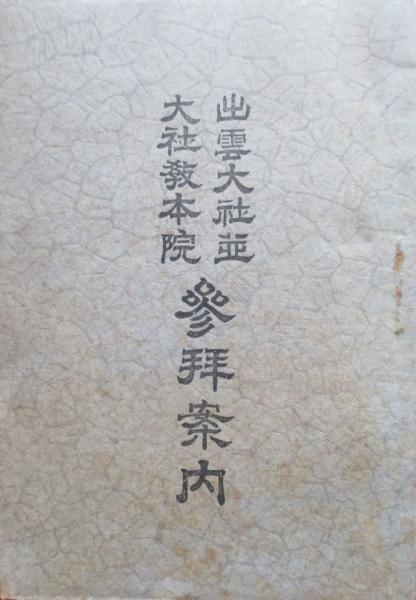 出雲大社並
大社教本院
參拜案内